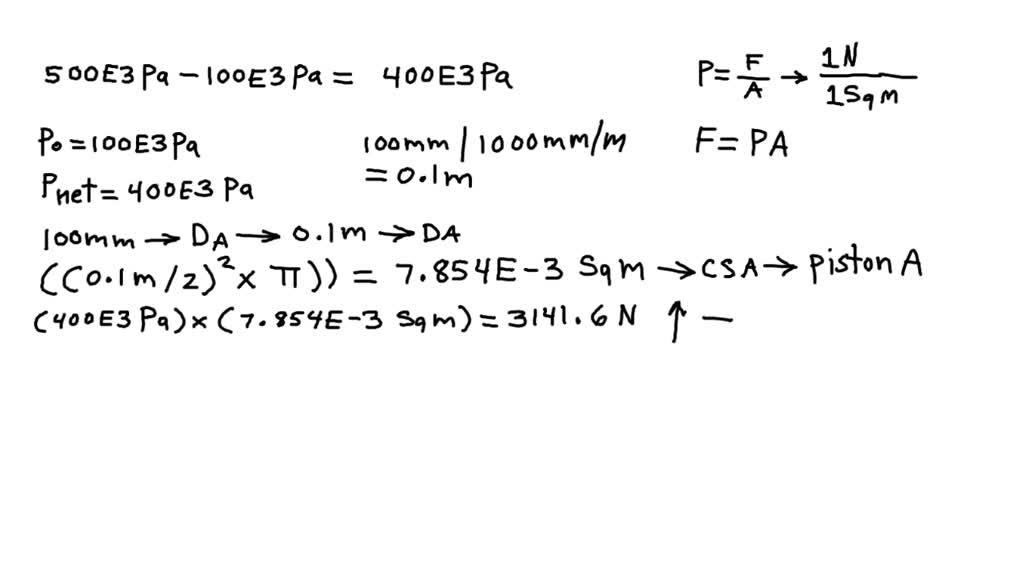 500E3 Pa - 100E3 Pa = 400E3 Pa
P = F/A → 1N/1Sqm
P₀ = 100E3 Pa
100mm | 1000mm/m
F = PA
= 0.1m
Pnet = 400E3 Pa
100mm → DA → 0.1m → DA
((0.1m/2)² × π)) = 7.854E-3 Sqm → CSA → Piston A
(400E3 Pa) × (7.854E-3 Sqm) = 3141.6 N ↑ —